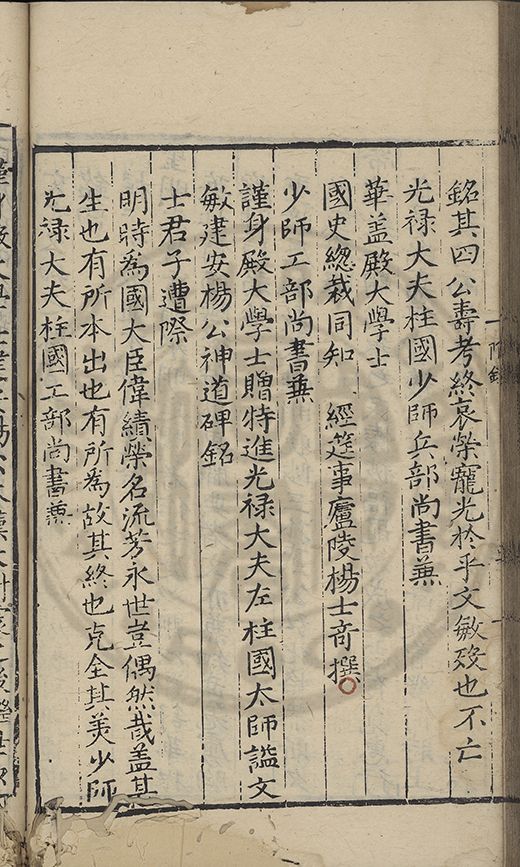 銘其四公壽考終哀榮寵光於乎文敏歿也不亡
光禄大夫柱國少師兵部尚書兼
華盖殿大學士
國史緫裁同知 經筵事廬陵楊士竒撰
少師工部尚書兼
謹身殿大學士贈特進光禄大夫左柱國太師謚文
敏建安楊公神道碑銘
士君子遭際
明時為國大臣偉績榮名流芳永世豈偶然哉盖其
生也有所本出也有所為故其終也克全其美少師
光禄大夫柱國工部尚書兼